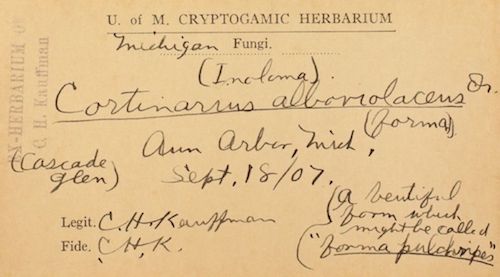 U. of M. CRYPTOGAMIC HERBARIUM
Michigan Fungi.
EX-HERBARIUM OF
C. H. Kauffman
(Inoloma).
Cortinarius alboviolaceus Fr.
(forma)
Ann Arbor, Mich,
(Cascade
glen)
Sept, 18/07.
Legit. C. H. Kauffman
Fide. C. H. K.
(a beutiful
form which
might be called
("forma pulchripes")